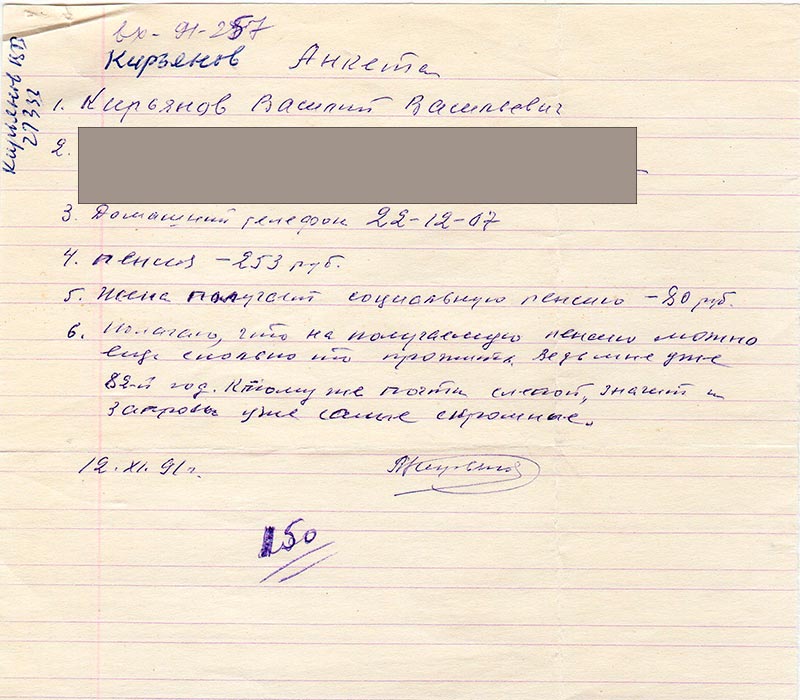 вх- 91-257
Кирьянов Анкета
Кирьянов ВВ
27332
1. Кирьянов Василий Васильевич
2.
3. Домашний телефон 22-12-07
4. пенсия - 253 руб.
5. Жена получает социальную пенсию - 80 руб.
6. Полагаю, что на получаемую пенсию можно
еще сколько то прожить. Ведь мне уже
82-й год. К тому же почти слепой, значит и
запросы уже самые скромные.
12. XI. 91 г.
150